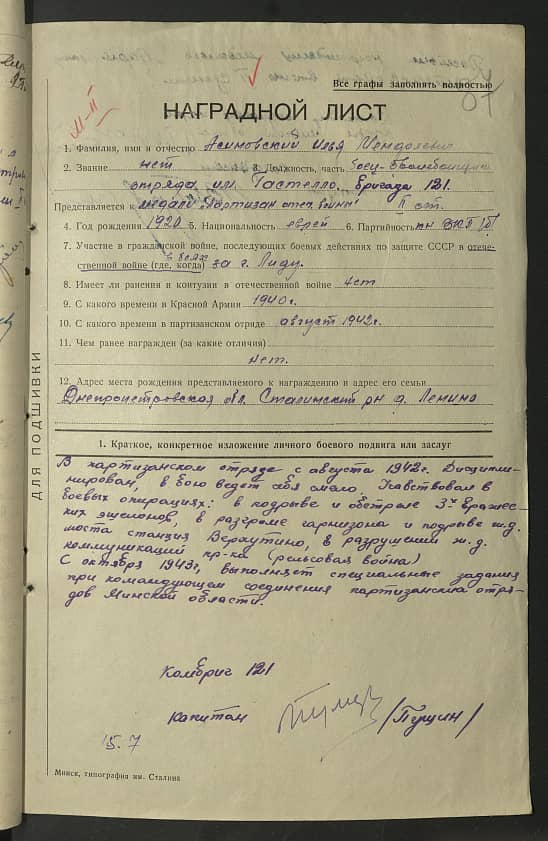 Все графы заполнять полностью
НАГРАДНОЙ ЛИСТ
1. Фамилия, имя и отчество Асиновский Илья Менделевич
2. Звание нет 3. Должность, часть боец-
отряда им. Гастелло, бригада 121.
Представляется к медали "Партизан отеч. войны" II ст.
4. Год рождения 1920 5. Национальность еврей 6. Партийность ВКП(б)
7. Участие в гражданской войне, последующих боевых действиях по защите СССР в отече-
ственной войне (где, когда) в боях за г. Лиду.
8. Имеет ли ранения и контузии в отечественной войне нет
9. С какого времени в Красной Армии 1940г.
10. С какого времени в партизанском отряде август 1942г.
11. Чем ранее награжден (за какие отличия)
нет.
12. Адрес места рождения представляемого к награждению и адрес его семьи
Днепропетровская обл. Сталинский рн д. Ленино
ДЛЯ ПОДШИВКИ
1. Краткое, конкретное изложение личного боевого подвига или заслуг
В партизанском отряде с августа 1942г. Дисципли-
нирован, в бою ведет себя смело. Участвовал в
боевых операциях: в подрыве и обстреле 3х вражес-
ких эшелонов, в разгроме гарнизона и подрыве ж.д.
моста станция Верхутино, в разрушении ж.д.
коммуникаций пр-ка (рельсовая война)
С октября 1943г, выполняет специальные задания
при командующем соединения партизанских отря-
дов Минской области.
Комбриг 121
Капитан /Пущин/
15.7
Минск, типография им. Сталина